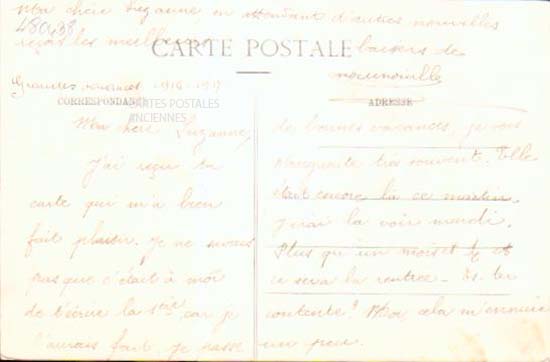 Ma chère Suzanne en attendant d'autres nouvelles
480438
reçois les meilleurs
baisers de
CARTE POSTALE
Grandes vacances 1916-1917
CORRESPONDANCE
CARTES POSTALES
ANCIENNES
ADRESSE
Ma chère Suzanne,
J'ai reçu ta
carte qui m'a bien
fait plaisir. Je ne savais
pas que c'était à moi
de t'écrire la 1ère car je
l'aurais fait, je passe
de bonnes vacances, je vois
Marguerite très souvent. Elle
était encore là ce matin.
J'irai la voir mardi.
Plus qu'un mois et
ce sera la rentrée - Es-tu
contente? Moi cela m'ennuie
un peu.